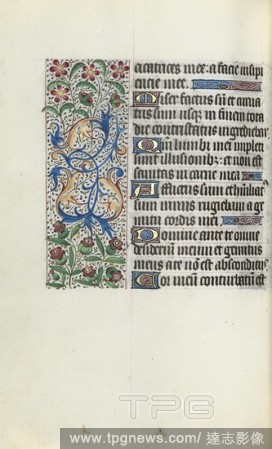 cicatrices mee: a facie insipi
encie mee.
Miser factus sum et curva
tus sum usq; in finem tota
die contristatus ingrediebar
Qm lumbi mei impleti
sunt illusionib;: et non est
sanitas in carne mea
Afflictus sum et humiliat
nimis rugiebam a ge
mitu cordis mei.
Domine ante te omne
desiderium meum et gemitus
meus a te nō est absconditus.
Cor meum conturbatum est
TPG
www.tpgnews.com/ 達志影像